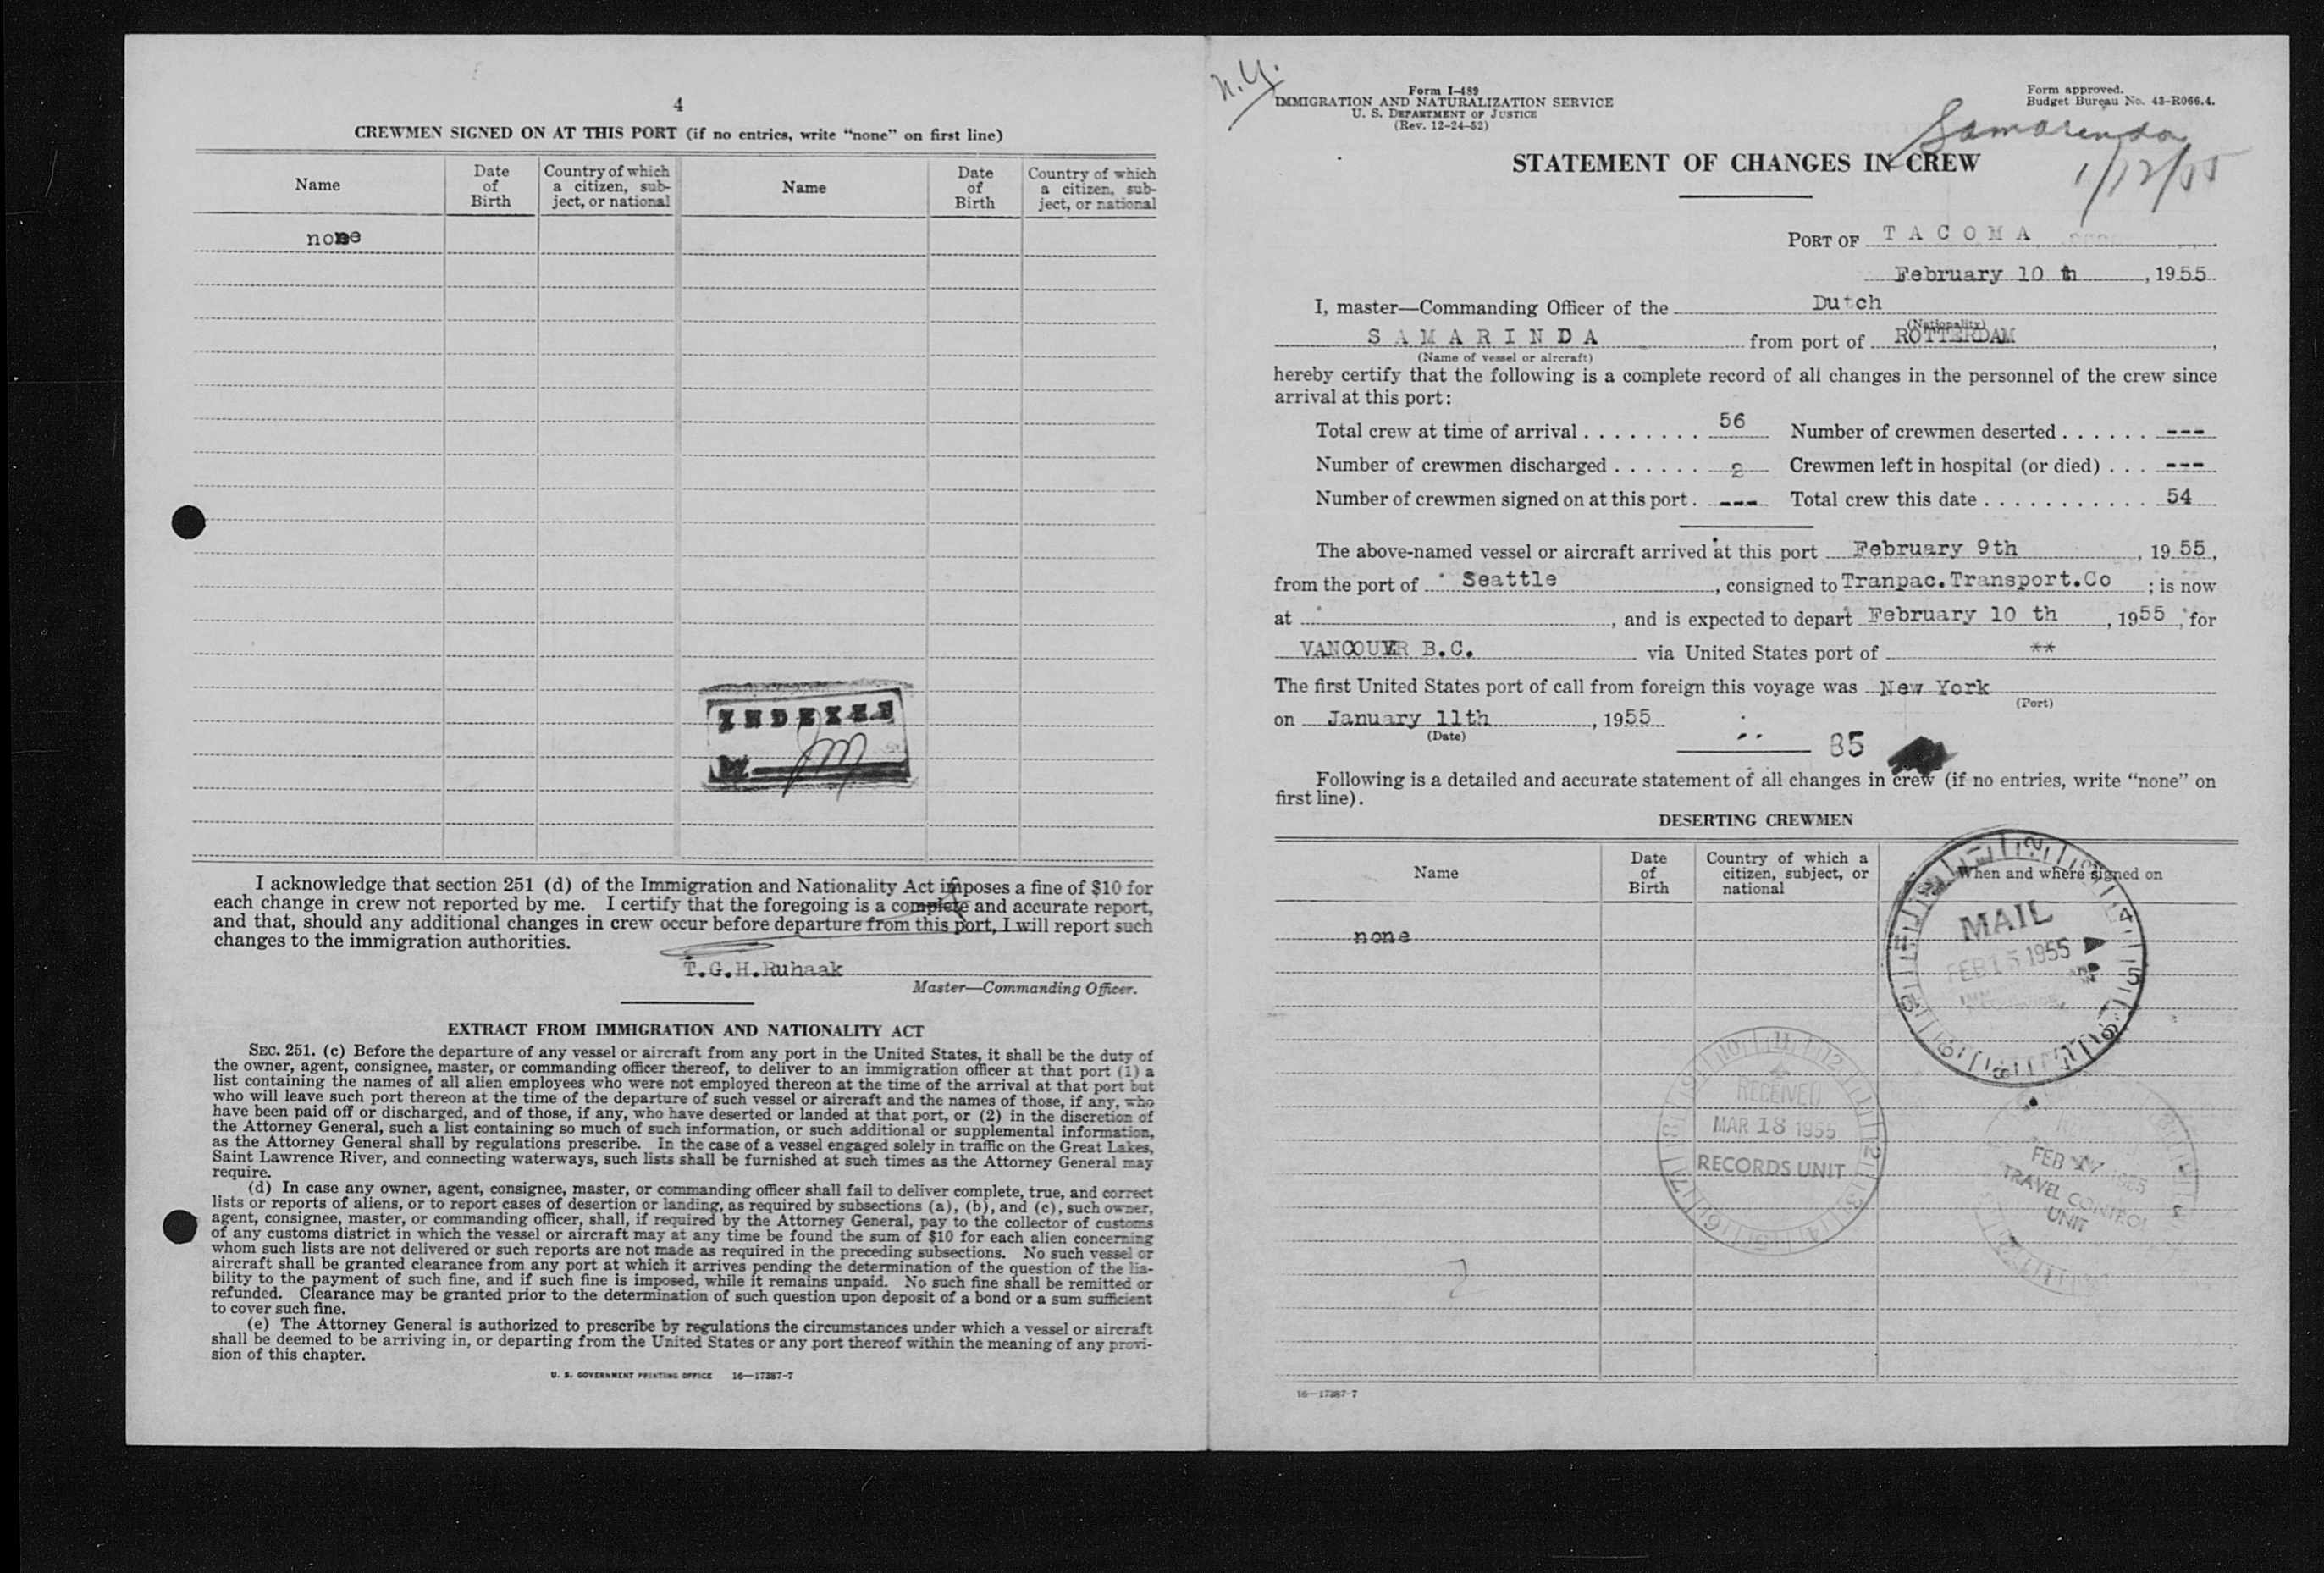 4
CREWMEN SIGNED ON AT THIS PORT (if no entries, write “none” on first line)
Name
Date of Birth
Country of which a citizen, sub-ject, or national
Name
Date of Birth
Country of which a citizen, sub-ject, or national
none
INDEXED
BY
I acknowledge that section 251 (d) of the Immigration and Nationality Act imposes a fine of $10 for
each change in crew not reported by me. I certify that the foregoing is a complete and accurate report,
and that, should any additional changes in crew occur before departure from this port, I will report such
changes to the immigration authorities.
T.G.H.Ruhaak
Master—Commanding Officer.
EXTRACT FROM IMMIGRATION AND NATIONALITY ACT
SEC. 251. (c) Before the departure of any vessel or aircraft from any port in the United States, it shall be the duty of
the owner, agent, consignee, master, or commanding officer thereof, to deliver to an immigration officer at that port (1) a
list containing the names of all alien employees who were not employed thereon at the time of the arrival at that port but
who will leave such port thereon at the time of the departure of such vessel or aircraft and the names of those, if any, who
have been paid off or discharged, and of those, if any, who have deserted or landed at that port, or (2) in the discretion of
the Attorney General, such a list containing so much of such information, or such additional or supplemental information,
as the Attorney General shall by regulations prescribe. In the case of a vessel engaged solely in traffic on the Great Lakes,
Saint Lawrence River, and connecting waterways, such lists shall be furnished at such times as the Attorney General may
require.
(d) In case any owner, agent, consignee, master, or commanding officer shall fail to deliver complete, true, and correct
lists or reports of aliens, or to report cases of desertion or landing, as required by subsections (a), (b), and (c), such owner,
agent, consignee, master, or commanding officer, shall, if required by the Attorney General, pay to the collector of customs
of any customs district in which the vessel or aircraft may at any time be found the sum of $10 for each alien concerning
whom such lists are not delivered or such reports are not made as required in the preceding subsections. No such vessel or
aircraft shall be granted clearance from any port at which it arrives pending the determination of the question of the lia-
bility to the payment of such fine, and if such fine is imposed, while it remains unpaid. No such fine shall be remitted or
refunded. Clearance may be granted prior to the determination of such question upon deposit of a bond or a sum sufficient
to cover such fine.
(e) The Attorney General is authorized to prescribe by regulations the circumstances under which a vessel or aircraft
shall be deemed to be arriving in, or departing from the United States or any port thereof within the meaning of any provi-
sion of this chapter.
U. S. GOVERNMENT PRINTING OFFICE 16—17387-7
N.Y.
Form I-489
IMMIGRATION AND NATURALIZATION SERVICE
U. S. DEPARTMENT OF JUSTICE
(Rev. 12-24-52)
Form approved.
Budget Bureau No. 43-R066.4.
Samarenda
1/12/55
STATEMENT OF CHANGES IN CREW
PORT OF TACOMA
February 10 th, 1955
I, master—Commanding Officer of the Dutch
(Nationality)
SAMARINDA from port of ROTTERDAM,
(Name of vessel or aircraft)
hereby certify that the following is a complete record of all changes in the personnel of the crew since
arrival at this port:
Total crew at time of arrival . . . . . . . . 56 Number of crewmen deserted . . . . . . ---
Number of crewmen discharged . . . . . . 2 Crewmen left in hospital (or died) . . . ---
Number of crewmen signed on at this port . --- Total crew this date . . . . . . . . . . . . 54
The above-named vessel or aircraft arrived at this port February 9th, 1955,
from the port of Seattle, consigned to Tranpac.Transport.Co ; is now
at , and is expected to depart February 10 th, 1955, for
VANCOUVER B.C. via United States port of **
The first United States port of call from foreign this voyage was New York
(Port)
on January 11th, 1955
(Date)
85
Following is a detailed and accurate statement of all changes in crew (if no entries, write “none” on
first line).
DESERTING CREWMEN
Name
Date of Birth
Country of which a citizen, subject, or national
When and where signed on
none
MAIL
FEB 15 1955
RECEIVED
MAR 18 1955
RECORDS UNIT
FEB 17 1955
TRAVEL CONTROL
UNIT
2
16—17387-7